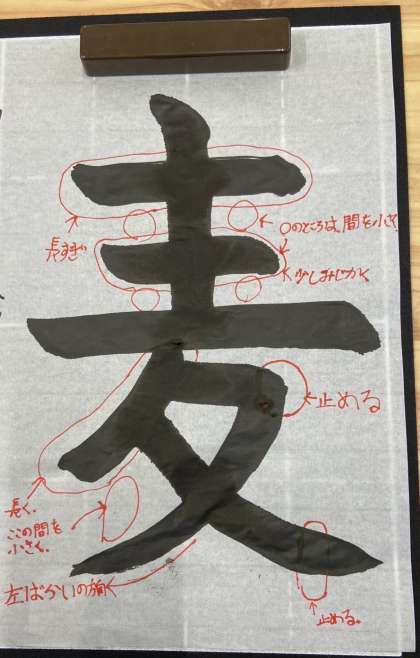 麦
長すぎ
○のところは、間を小さく
少しみじかく
止める
長く。
ここの間を
小さく。
左ばらいの向
止める。